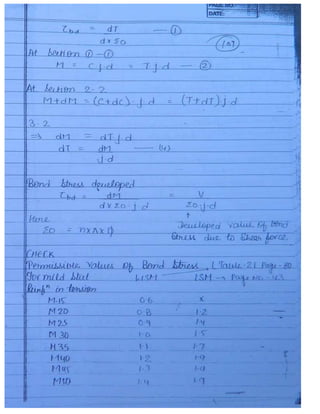 PAGE NO.
DATE:
τbd = dT —①
dx ΣO
At Section ①-①
M = C j d = T j d —②
At Section 2-2
M+dM = (C+dC)·j d = (T+dT) j d
3-2
⇒ dM = dT j d
dT = dM —(4)
j d
Bond Stress developed
τbd = dM = V
dx ΣO·j d ΣO·j d
Here Developed value of bond
ΣO = nxπxϕ Stress due to Shear force
CHECK
Permissible Values of Bond Stress (Table-21 Page-80
for mild Steel WSM LSM → Page No.-43
Reinfn in tension
M-15 0.6 x
M20 0.8 1.2
M25 0.9 1.4
M30 1.0 1.5
M35 1.1 1.7
M40 1.2 1.9
M45 1.3 1.9
M50 1.4 1.9